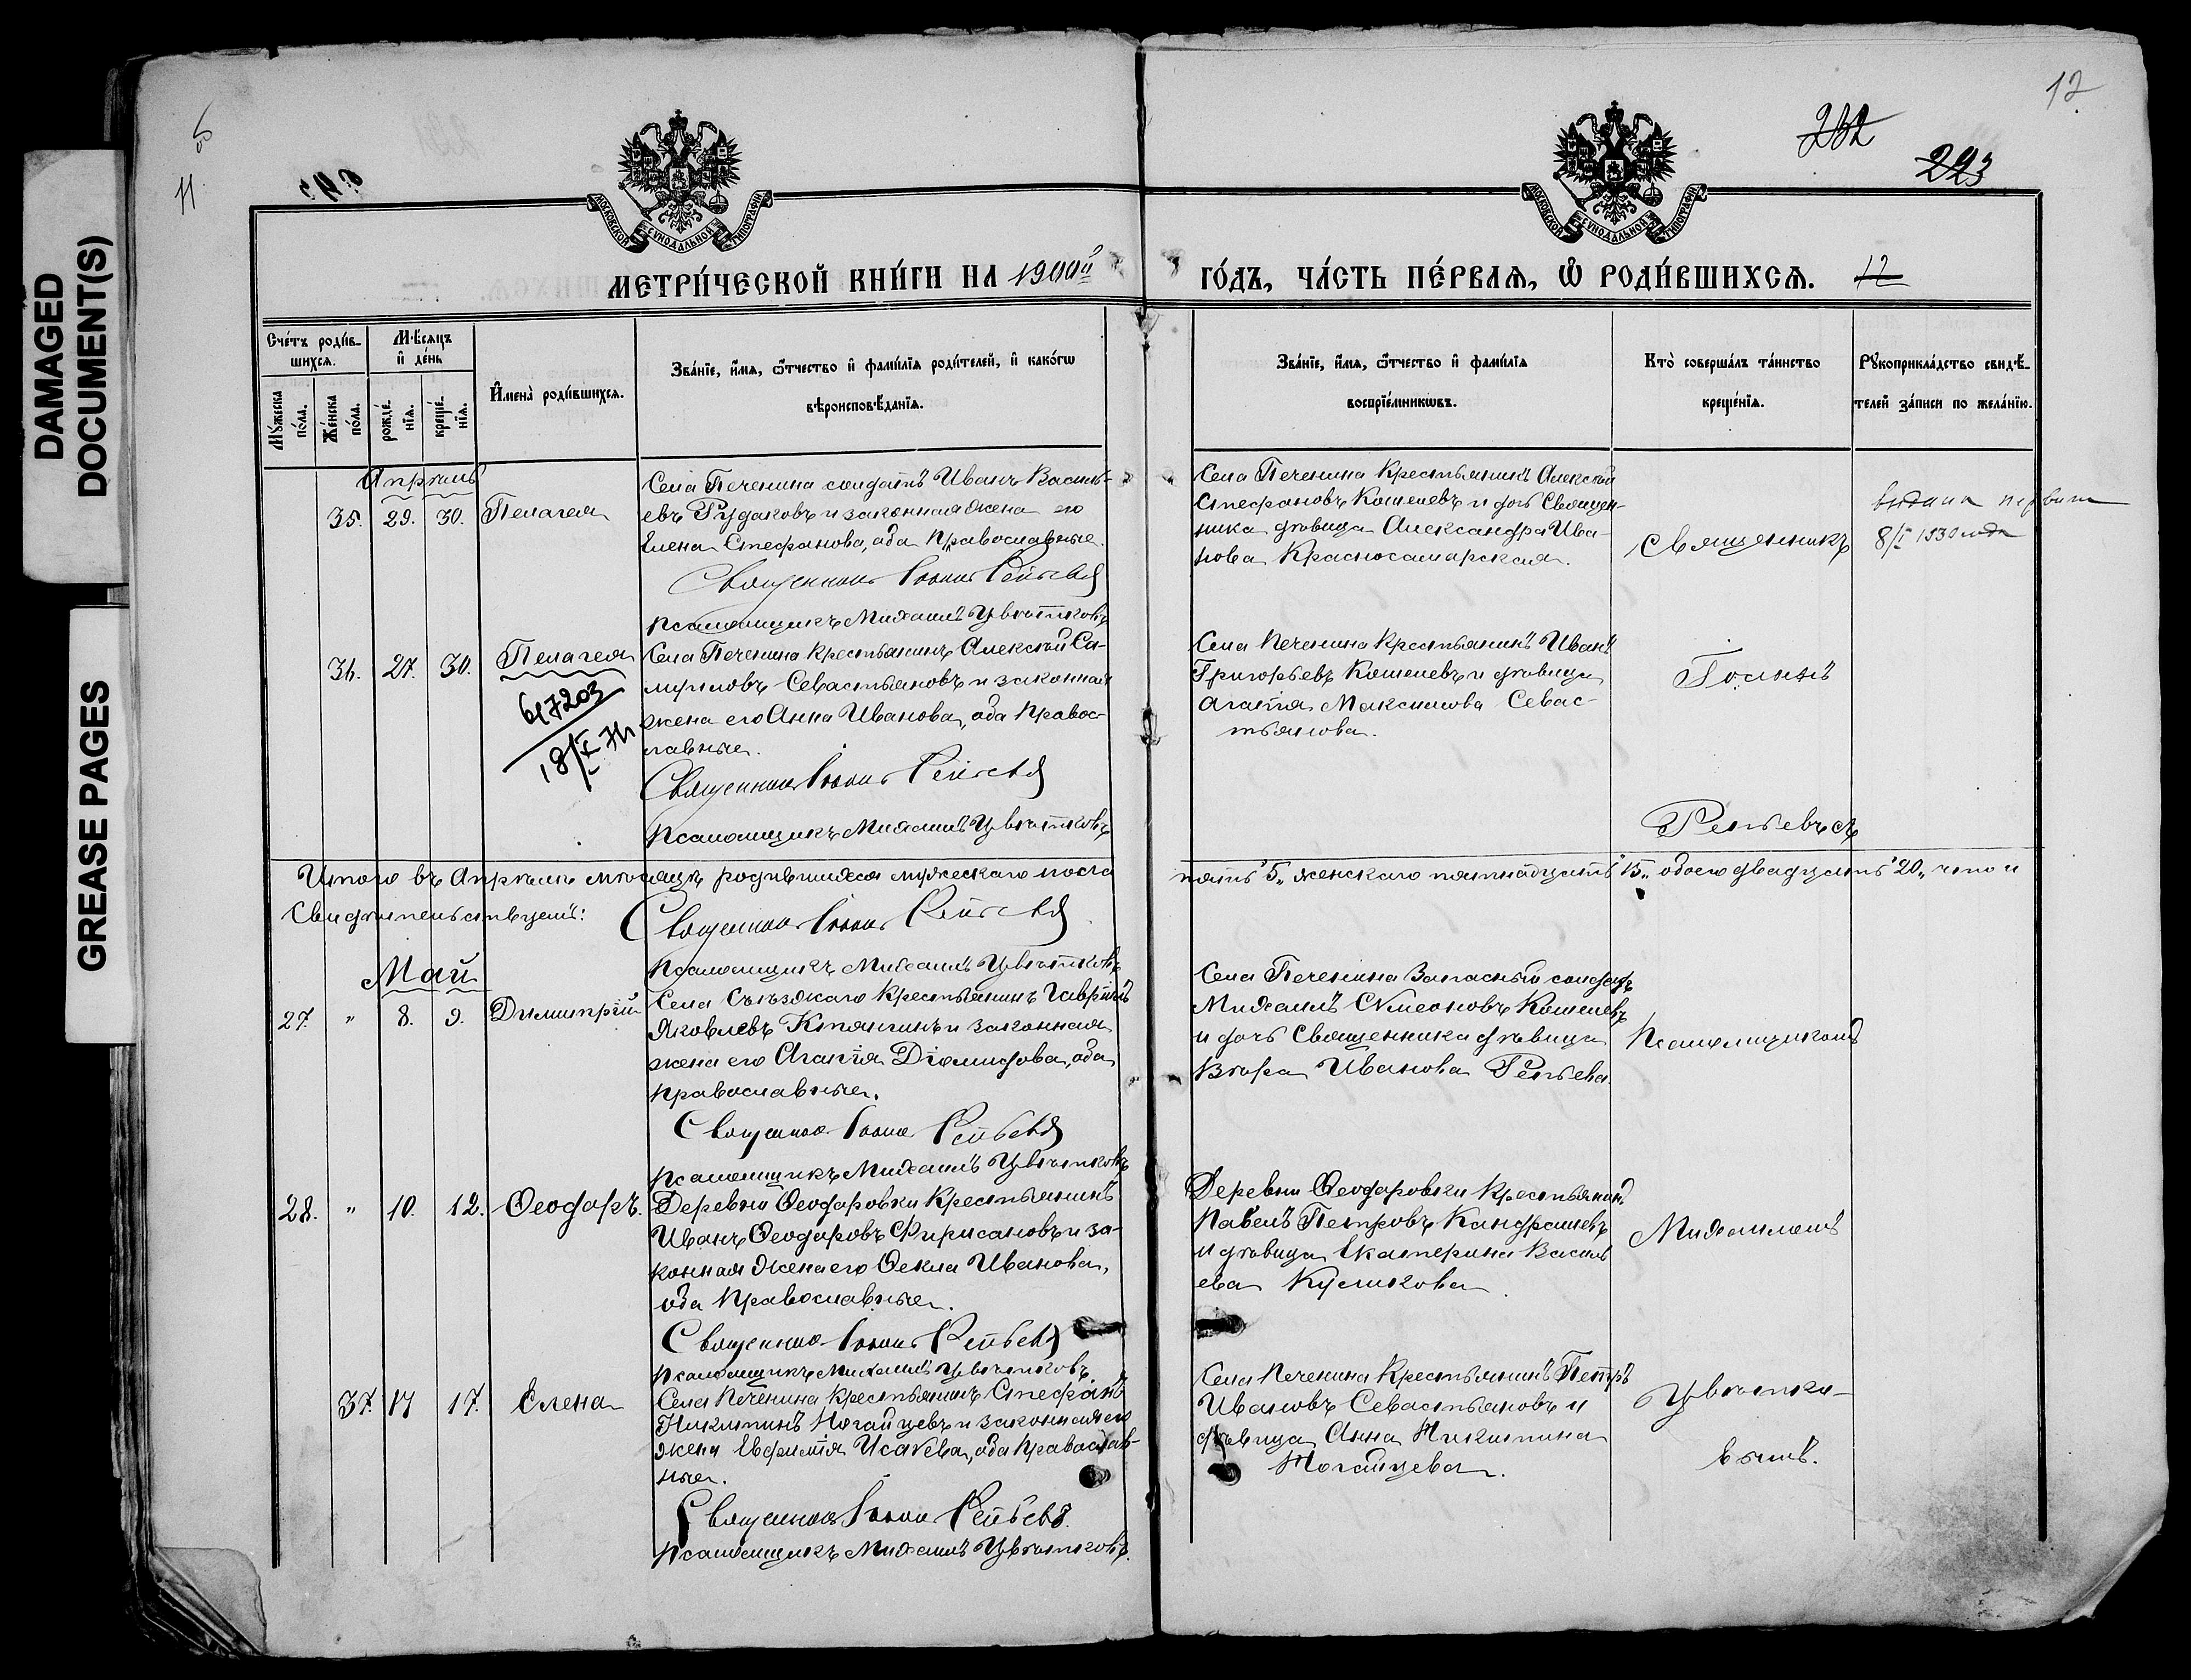 DAMAGED
DOCUMENT(S)
GREASE PAGES
6
11
12
223
МОСКОВСКОЙ СУНОДАЛЬНОЙ ТИПОГРАФІИ
МОСКОВСКОЙ СУНОДАЛЬНОЙ ТИПОГРАФІИ
МЕТРИ́ЧЕСКОЙ КНИ́ГИ НА 1900й ГО́ДЪ, ЧА́СТЬ ПЕ́РВАЯ, Ѡ҆ РОДИ́ВШИХСЯ. 12
Сче́тъ роди́в-
шихся.
Мѣ́сяцъ
и҆ де́нь
Мꙋ́жеска
по́ла.
Же́нска
по́ла.
рожде́-
нїя.
креще́-
нїя.
И҆мена̀ роди́вшихся.
Зва́нїе, и҆́мя, ѻ҆́тчество и҆ фами́лїя роди́телей, и҆ како́гѡ
вѣроисповѣ́данїя.
Зва́нїе, и҆́мя, ѻ҆́тчество и҆ фами́лїя
воспрїе́мникѡвъ.
Кто̀ соверша́лъ та́инство
креще́нїя.
Рꙋкоприкла́дство свидѣ́-
телей за́писи по жела́нїю.
Апрѣль
35. 29. 30. Пелагея
Села Печенина солдатъ Иванъ Василь-
евъ Рудаковъ и законная жена его
Елена Стефанова, оба Православные.
Священникъ Іоаннъ Репьевъ
Псаломщикъ Михаилъ Цвѣтковъ
Села Печенина Крестьянинъ Алексѣй
Стефановъ Кошелевъ и дочь Священ-
ника дѣвица Александра Ива-
нова Красносамарская.
Священникъ
выдана
8/I 1930 года
36. 27. 30. Пелагея
617203
18/X 71
Села Печенина Крестьянинъ Алексѣй Са-
мужна жена его Анна Иванова, оба Правос-
лавные.
Священникъ Іоаннъ Репьевъ
Псаломщикъ Михаилъ Цвѣтковъ
Села Печенина Крестьянинъ Иванъ
Григорьевъ Кошелевъ и дѣвица
Агапія Максимова Севас-
тьянова.
Іоаннъ
Репьевъ съ
Итого въ Апрѣлѣ мѣсяцѣ родившихся мужескаго пола пять "5", женскаго пятнадцать "15", обоего двадцать "20", что и
Свидѣтельствуемъ:
Священникъ Іоаннъ Репьевъ
Псаломщикъ Михаилъ Цвѣтковъ
Май
27. " 8. 9. Димитрій
Села Съѣзжаго Крестьянинъ Гавріилъ
Яковлевъ Княгининъ и законная
жена его Агапія Діомидова, оба
православные.
Священникъ Іоаннъ Репьевъ
Псаломщикъ Михаилъ Цвѣтковъ
Села Печенина Запасный солдатъ
Михаилъ Сѵмеоновъ Кошелевъ
и дочь Священника дѣвица
Вѣра Иванова Репьева
Псаломщикомъ
28. " 10. 12. Ѳеодоръ.
Деревни Ѳеодоровки Крестьянинъ
Иванъ Ѳеодоровъ Фирисановъ и за-
конная жена его Ѳекла Иванова,
оба Православные.
Священникъ Іоаннъ Репьевъ
Псаломщикъ Михаилъ Цвѣтковъ
Деревни Ѳеодоровки Крестьянинъ
Павелъ Петровъ Кандрашевъ
и дѣвица Екатерина Василь
ева Куликова.
Михаиломъ
37. 17 17. Елена
Села Печенина Крестьянинъ Стефанъ
Никитинъ Ногайцевъ и законная его
жена Евфимія Исаѵева, оба православ-
ные.
Священникъ Іоаннъ Репьевъ
Псаломщикъ Михаилъ Цвѣтковъ.
Села Печенина Крестьянинъ Петръ
Ивановъ Севастьяновъ и
дѣвица Анна Никитина
Ногайцева.
Цвѣтко-
вымъ.